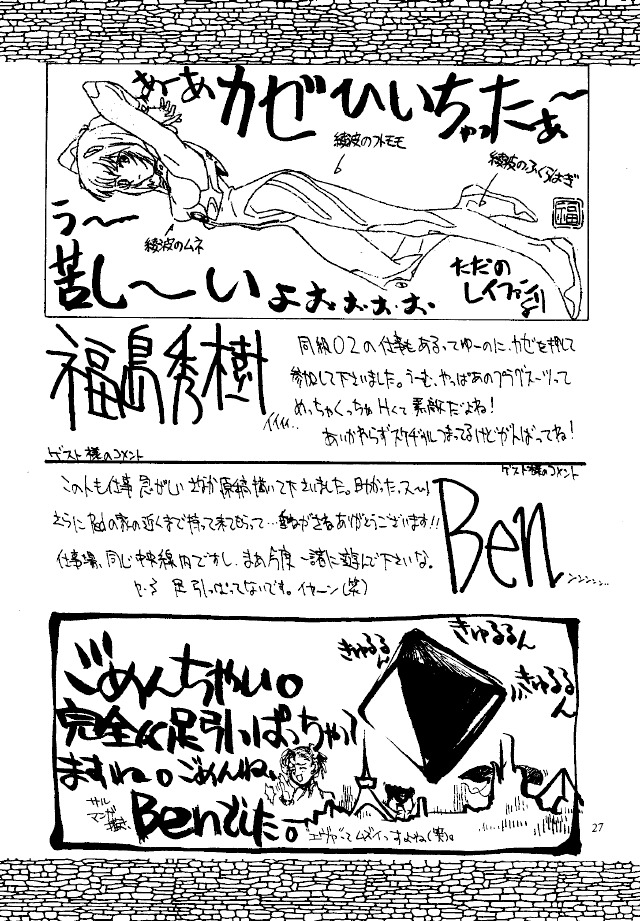 あーあカゼひいちゃったぁ〜
綾波のフトモモ
綾波のふくらはぎ
福
う〜
綾波のムネ
苦し〜いよぉぉぉぉ
ただの
レイファンより
福島秀樹
イイイ…
同級02の仕事もあるってゆーのに、カゼを押して
参加して下さいました。うーむ、やっぱあのプラグスーツって
めっちゃくっちゃHくて素敵だよね!
あいかわらずスケヂュルつまってるけどがんばってね!
ゲスト様のコメント
ゲスト様のコメント
この人も仕事 急がしい 原稿描いて下さいました。助かたっス〜!
さらに の家の近くまで持って来てもらって…重ねがさねありがとうございます!!
仕事場、同じ中央線内ですし、まあ今度一緒に遊んで下さいな。
足引っぱってないです。イヤーン(笑)
Ben
ンンンン…
ごめんちゃい。
完全に足引っぱっちゃって
ますね。ごめんね、
サル
マンガ
Benでした。
きゅるるん
きゅるるん
きゅるるん
"エヴァ"ってムズイっすよね(笑)。
27